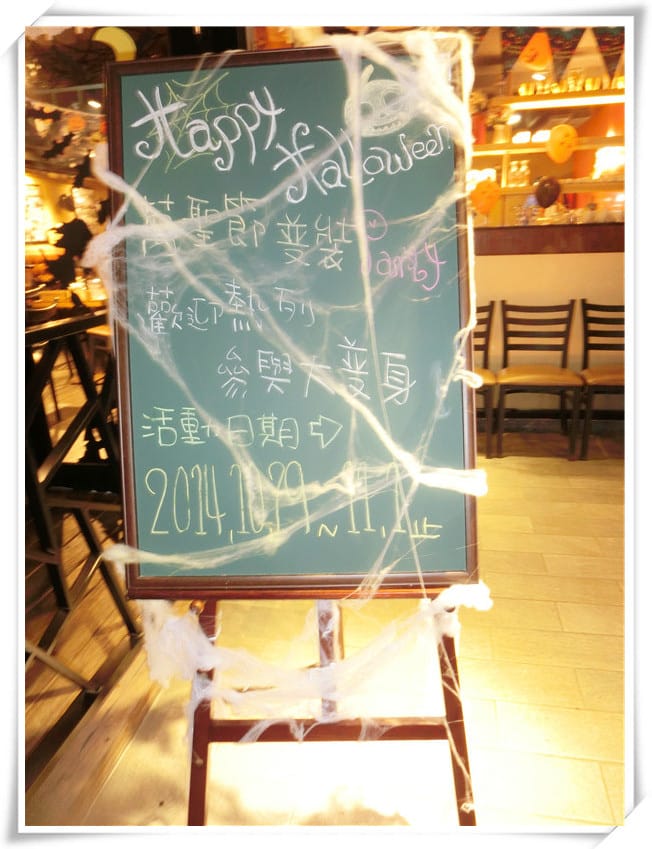 Happy
Halloween
萬聖節變裝Party
歡迎熱烈
參與大變身
活動日期⇨
2014,10,29~11,1止